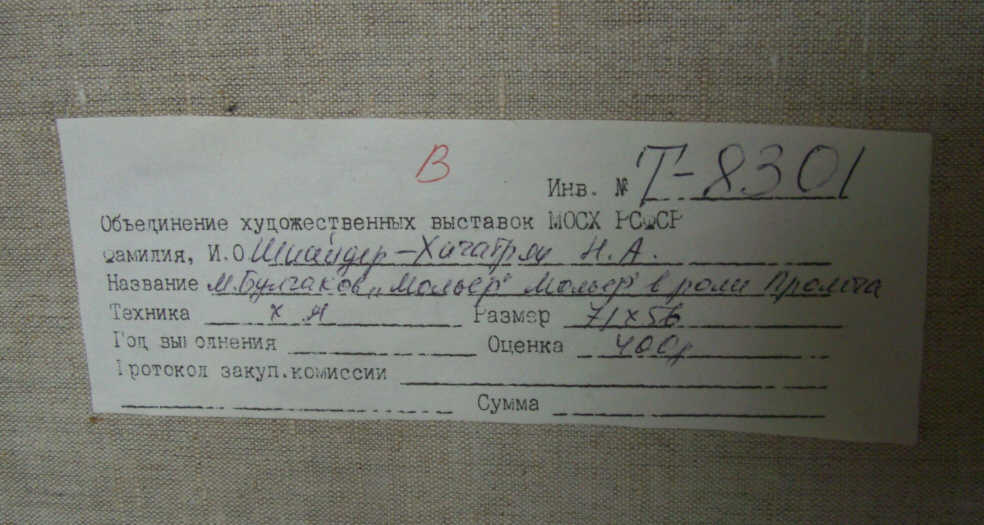 В
Инв. № Т-8301
Объединение художественных выставок МОСХ РСФСР
Фамилия, И.О Шнайдер-Хачатрян Н.А.
Название М.Булгаков „Мольер" Мольер в роли
Техника х м Размер 71х56
Год выполнения Оценка 400р
Протокол закуп.комиссии
Сумма